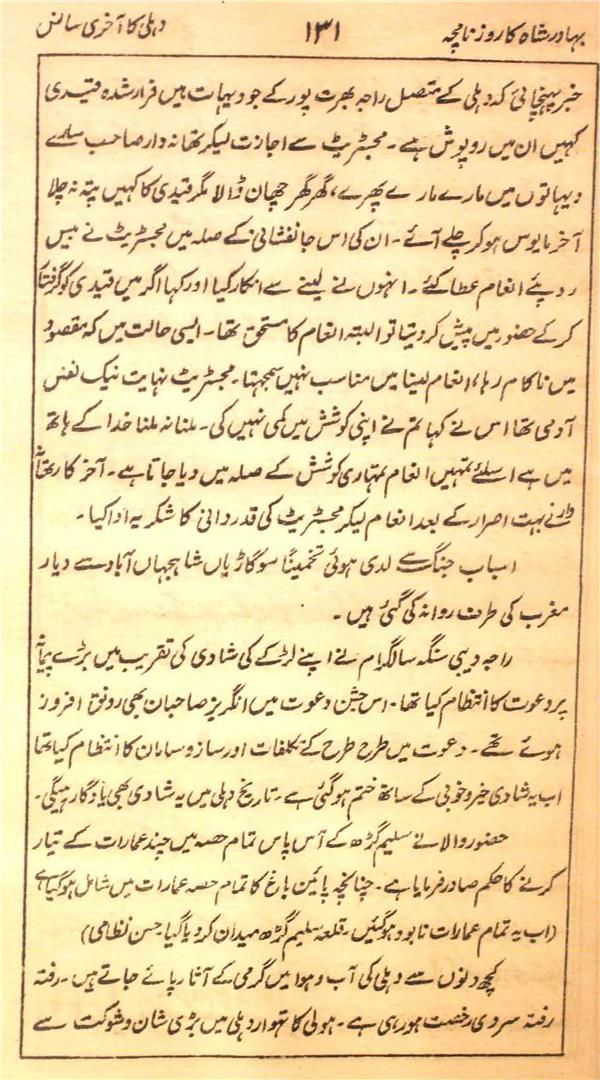 بہادر شاہ کا روزنامچہ ۱۳۱ دہلی کا آخری سانس
خبر پہنچائی کہ دہلی کے متصل راجہ بھرت پور کے جو دیہات ہیں فرار شدہ قیدی
کہیں ان میں روپوش ہے۔ مجسٹریٹ سے اجازت لیکر تھانہ دار صاحب سارے
دیہاتوں میں مارے مارے پھرے، گھر گھر چھان ڈالا مگر قیدی کا کہیں پتہ نہ چلا
آخر مایوس ہو کر چلے آئے۔ ان کی اس جانفشانی کے صلہ میں مجسٹریٹ نے بیس
روپئے انعام عطا کئے۔ انہوں نے لینے سے انکار کیا اور کہا اگر میں قیدی کو گرفتار
کر کے حضور میں پیش کر دیتا تو البتہ انعام کا مستحق تھا۔ ایسی حالت میں کہ مقصود
میں ناکام رہا، انعام لینا میں مناسب نہیں سمجہتا۔ مجسٹریٹ نہایت نیک نفس
آدمی تھا اس نے کہا تم نے اپنی کوشش میں کمی نہیں کی۔ ملنا نہ ملنا خدا کے ہاتھ
میں ہے اسلئے تمہیں انعام تمہاری کوشش کے صلہ میں دیا جاتا ہے۔ آخر کار تھانہ
دار نے بہت اصرار کے بعد انعام لیکر مجسٹریٹ کی قدردانی کا شکریہ ادا کیا۔
اسباب جنگ سے لدی ہوئی تخمیناً سو گاڑیاں شاہجہاں آباد سے دیار
مغرب کی طرف روانہ کی گئی ہیں۔
راجہ دیبی سنگہ سالگرام نے اپنے لڑکے کی شادی کی تقریب میں بڑے پیمانہ
پر دعوت کا انتظام کیا تھا۔ اس جشن دعوت میں انگریز صاحبان بھی رونق افروز
ہوئے تھے۔ دعوت میں طرح طرح کے تکلفات اور ساز و سامان کا انتظام کیا تھا
اب یہ شادی خیر و خوبی کے ساتھ ختم ہوگئی ہے۔ تاریخ دہلی میں یہ شادی بھی یادگار رہیگی۔
حضور والا نے سلیم گڑھ کے آس پاس تمام حصہ میں چند عمارات کے تیار
کرنے کا حکم صادر فرمایا ہے۔ چنانچہ پائین باغ کا تمام حصہ عمارات میں شامل ہو گیا ہے
(اب یہ تمام عمارات نابود ہوگئیں۔ قلعہ سلیم گڑھ میدان کر دیا گیا حسن نظامی)
کچھ دنوں سے دہلی کی آب و ہوا میں گرمی کے آثار پائے جاتے ہیں۔ رفتہ
رفتہ سردی رخصت ہو رہی ہے۔ ہولی کا تہوار دہلی میں بڑی شان و شوکت سے